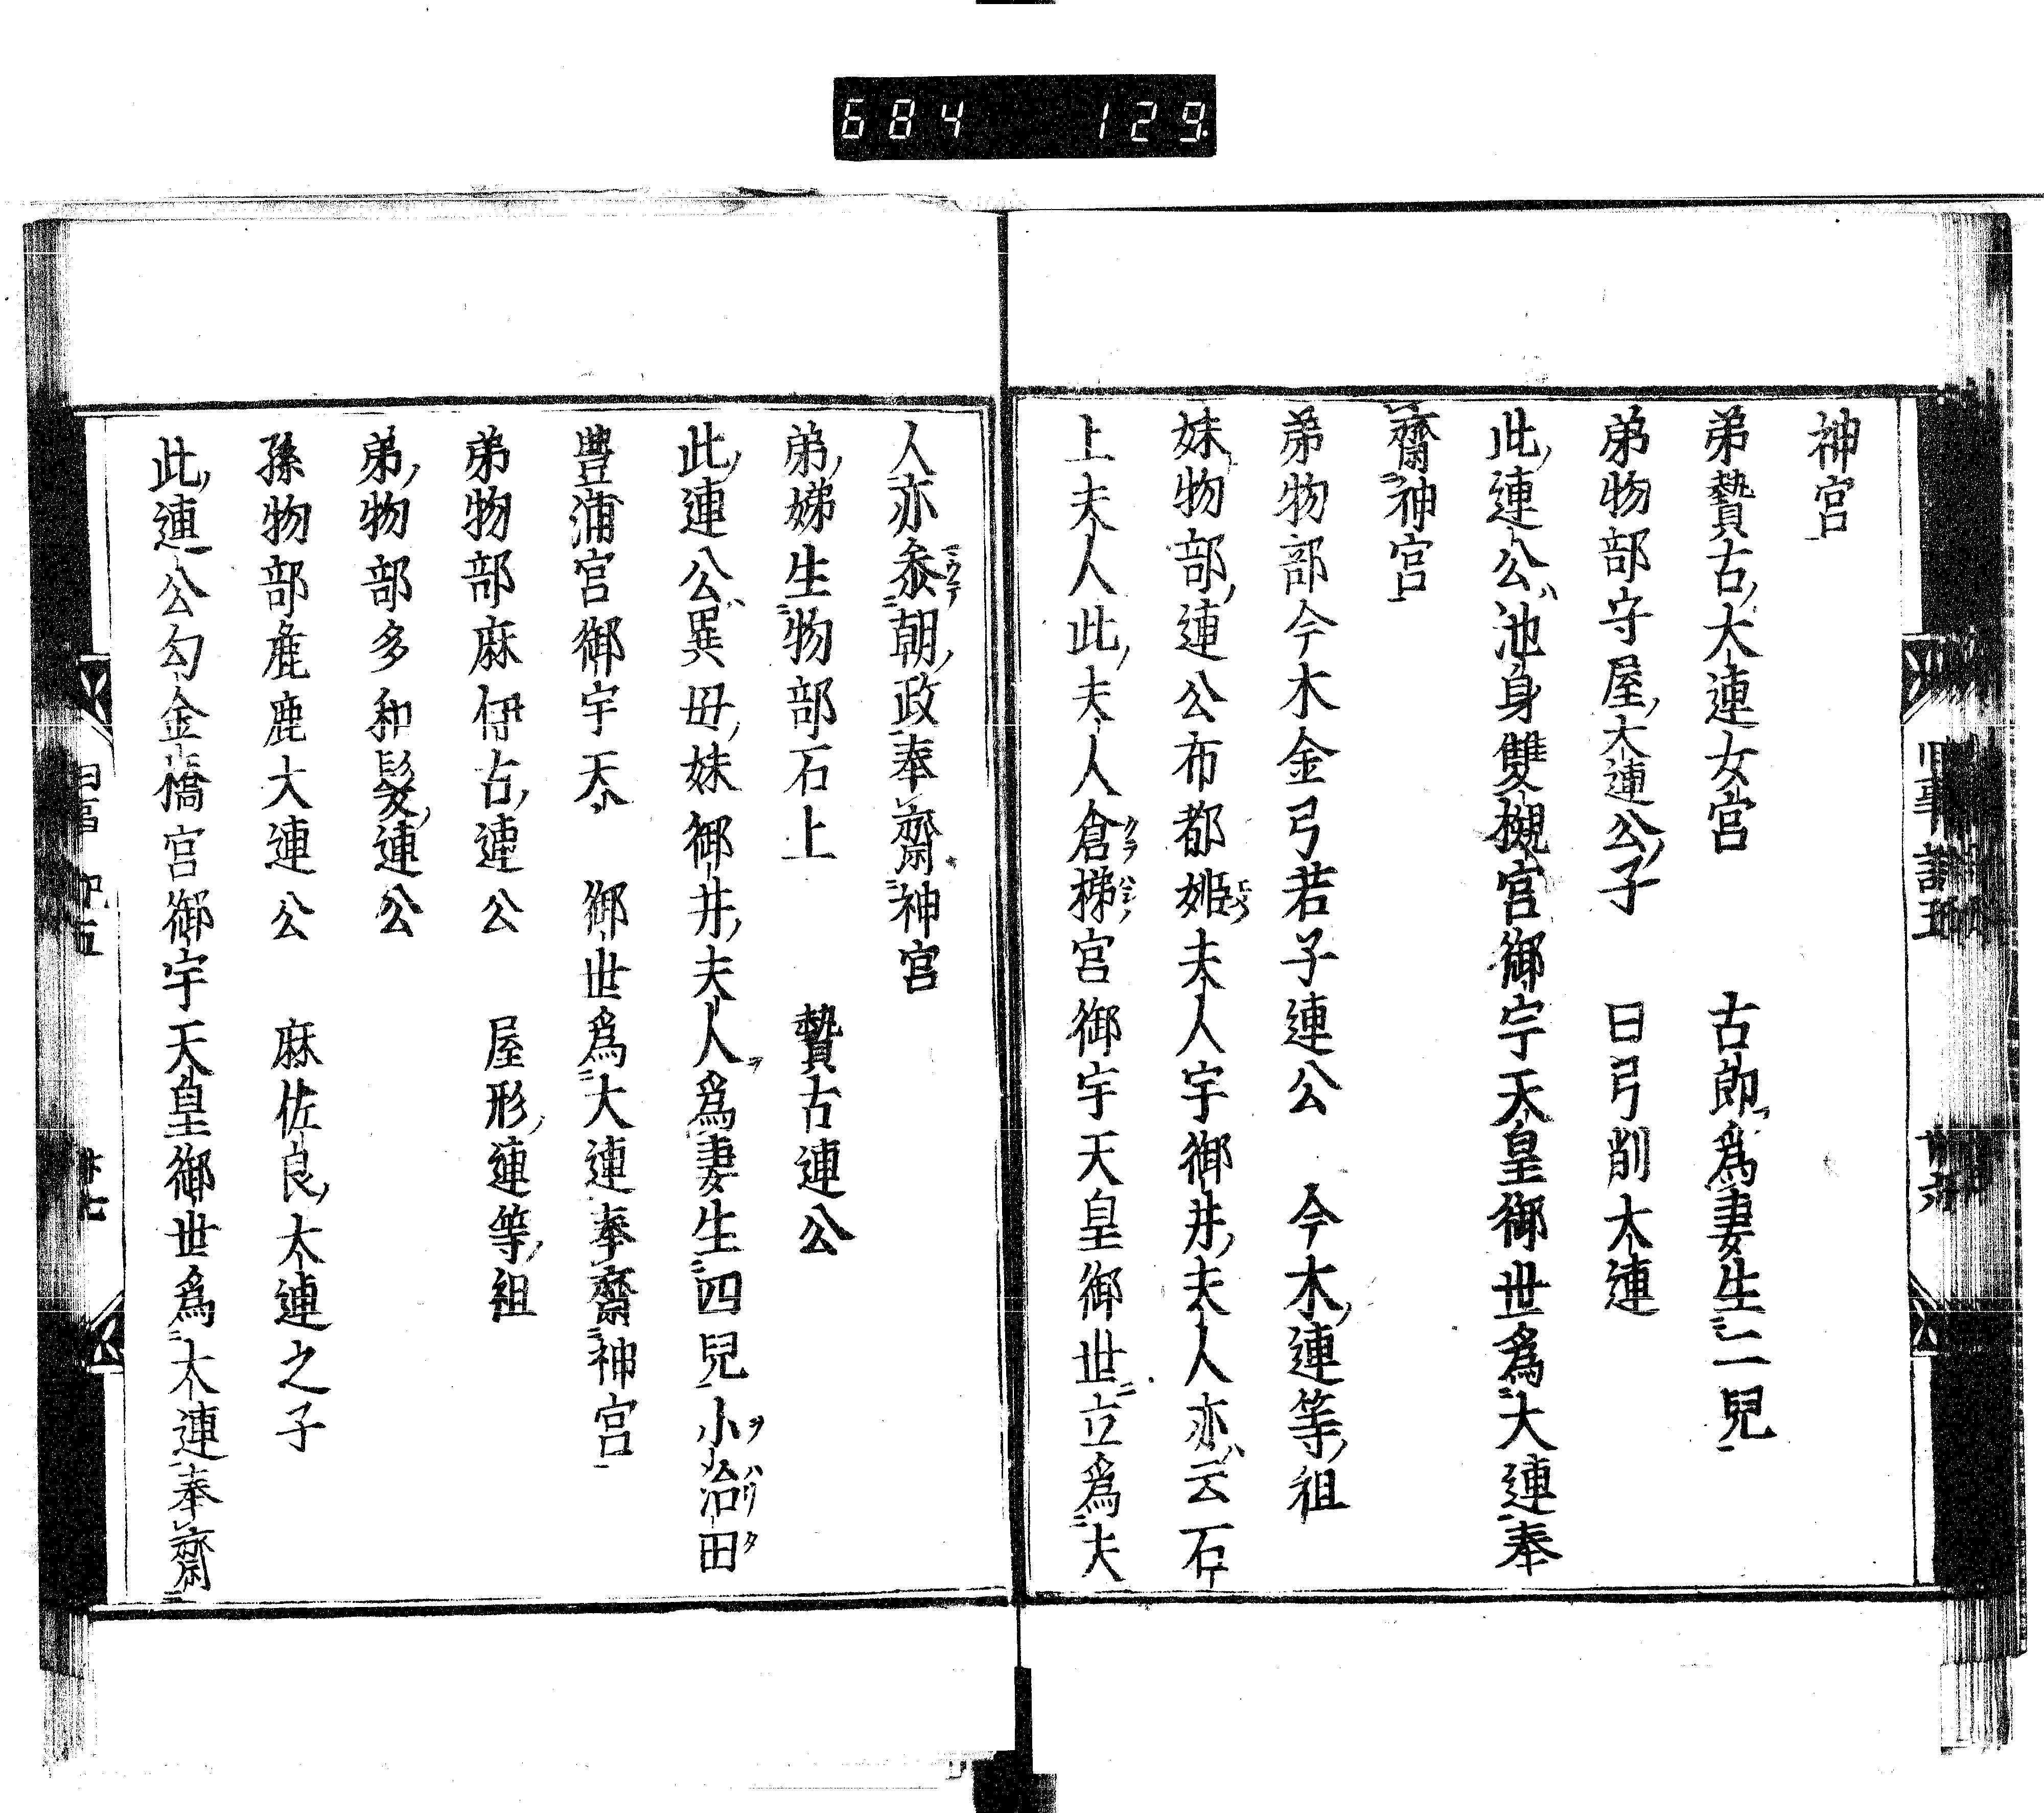 684 129
神宮
弟贄古大連女宮 古郎爲妻生二兒
弟物部守屋大連公子 曰弓削大連
此連公池身雙槻宮御宇天皇御世爲大連奉
齋神宮
弟物部今木金弓若子連公 今木連等祖
妹物部連公布都姬夫人字御井夫人亦云石
上夫人此夫人倉梯宮御宇天皇御世立爲夫
人亦叅朝政奉齋神宮
弟娣生物部石上 贄古連公
此連公異母妹御井夫人爲妻生四兒小治田
豊浦宮御宇天 御世爲大連奉齋神宮
弟物部麻伊古連公 屋形連等祖
弟物部多和髮連公
孫物部麁鹿大連公 麻佐良大連之子
此連公勾金橋宮御宇天皇御世爲大連奉齋